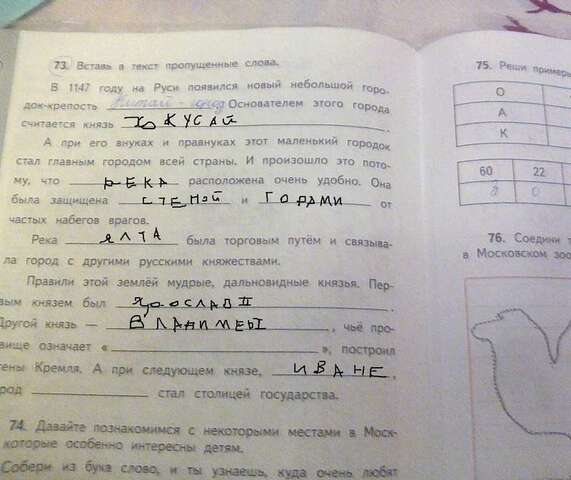 73. Вставь в текст пропущенные слова.
В 1147 году на Руси появился новый небольшой горо-
док-крепость Китай - город Основателем этого города
считается князь ХОКУСАЙ.
А при его внуках и правнуках этот маленький городок
стал главным городом всей страны. И произошло это пото-
му, что РЕКА расположена очень удобно. Она
была защищена СТЕНОЙ и ГОРАМИ от
частых набегов врагов.
Река ЯЛТА была торговым путём и связыва-
ла город с другими русскими княжествами.
Правили этой землёй мудрые, дальновидные князья. Пер-
вым князем был ЯРОСЛАВ II.
Другой князь — , чьё про-
вище означает « », построил
тены Кремля. А при следующем князе, ИВАНЕ,
род стал столицей государства.
74. Давайте познакомимся с некоторыми местами в Моск-
которые особенно интересны детям.
Собери из букв слово, и ты узнаешь, куда очень любят
75. Реши примеры
О
А
К
60 22
8 0
76. Соедини т
в Московском зоо